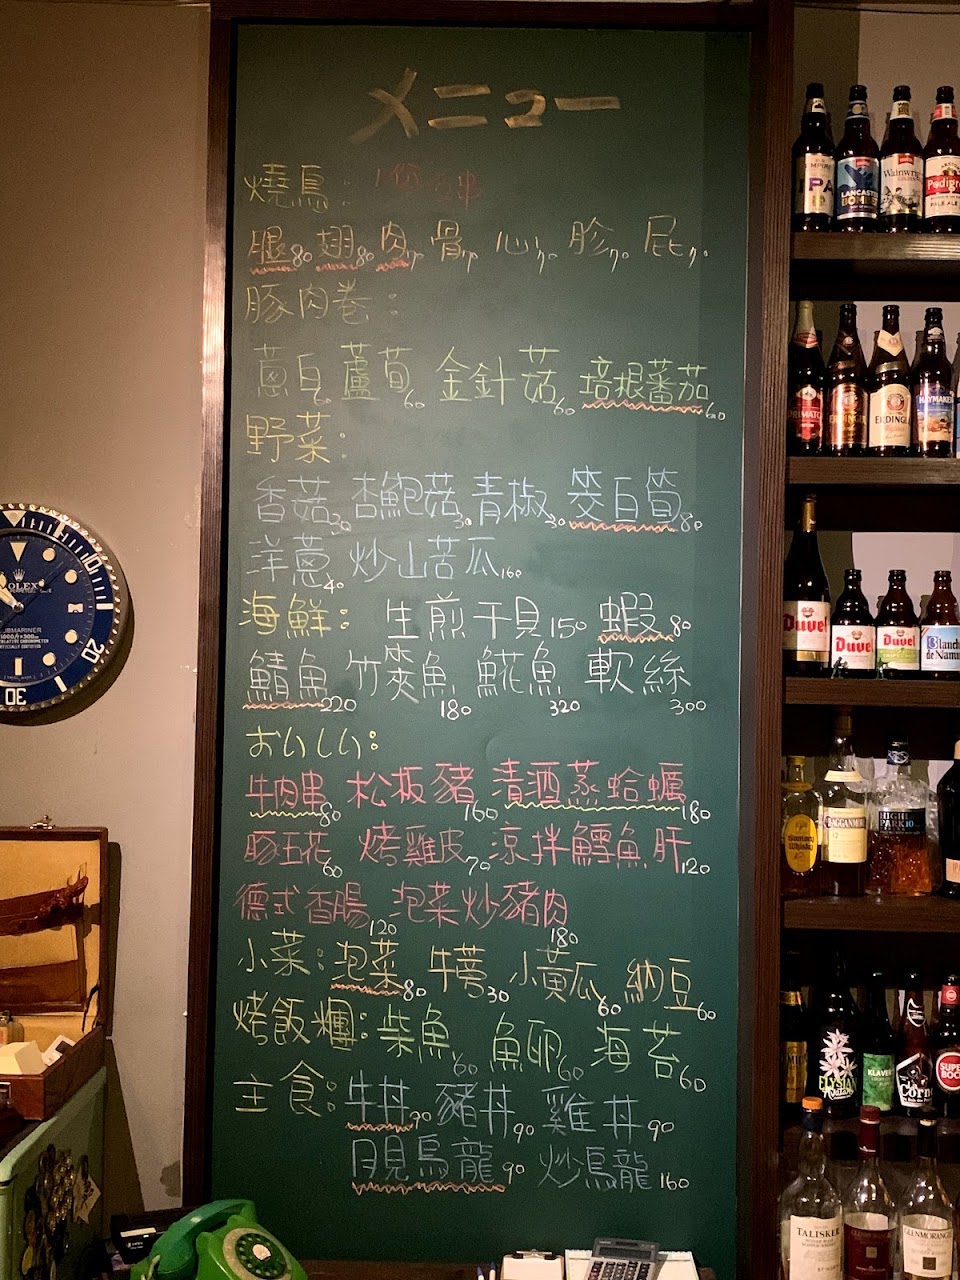 メニュー
燒鳥: 1份2串
腿80 翅80 肉70 骨70 心70 胗70 屁70
豚肉卷:
蔥白60 蘆筍60 金針菇60 培根蕃茄60
野菜:
香菇30 杏鮑菇30 青椒30 筊白筍80
洋蔥40 炒山苦瓜160
海鮮: 生煎干貝150 蝦80
鯖魚220 竹筴魚180 魠魚320 軟絲300
おいしい:
牛肉串80 松板豬160 清酒蒸蛤蠣180
豚五花60 烤雞皮70 涼拌鱈魚肝120
德式香腸120 泡菜炒豬肉180
小菜: 泡菜80 牛蒡30 小黃瓜60 納豆60
烤飯糰: 柴魚60 魚卵60 海苔60
主食: 牛丼90 豬丼90 雞丼90
月見烏龍90 炒烏龍160
IPA
LANCASTER BOMBER
Wainwright
Pedigree
PALE ALE
PRIMATOR
ERDINGER
ERDINGER
HAYMAKER
Duvel
Duvel
Duvel
Blanche de Namur
ROLEX
SUBMARINER
1000ft=300m
10
20
30
Suntory Whisky
CRAGGANMORE
HIGHLAND PARK 10
ELYSIAN
KLAVER
Corne
SUPER BOCK
TALISKER
GLENMORANGIE